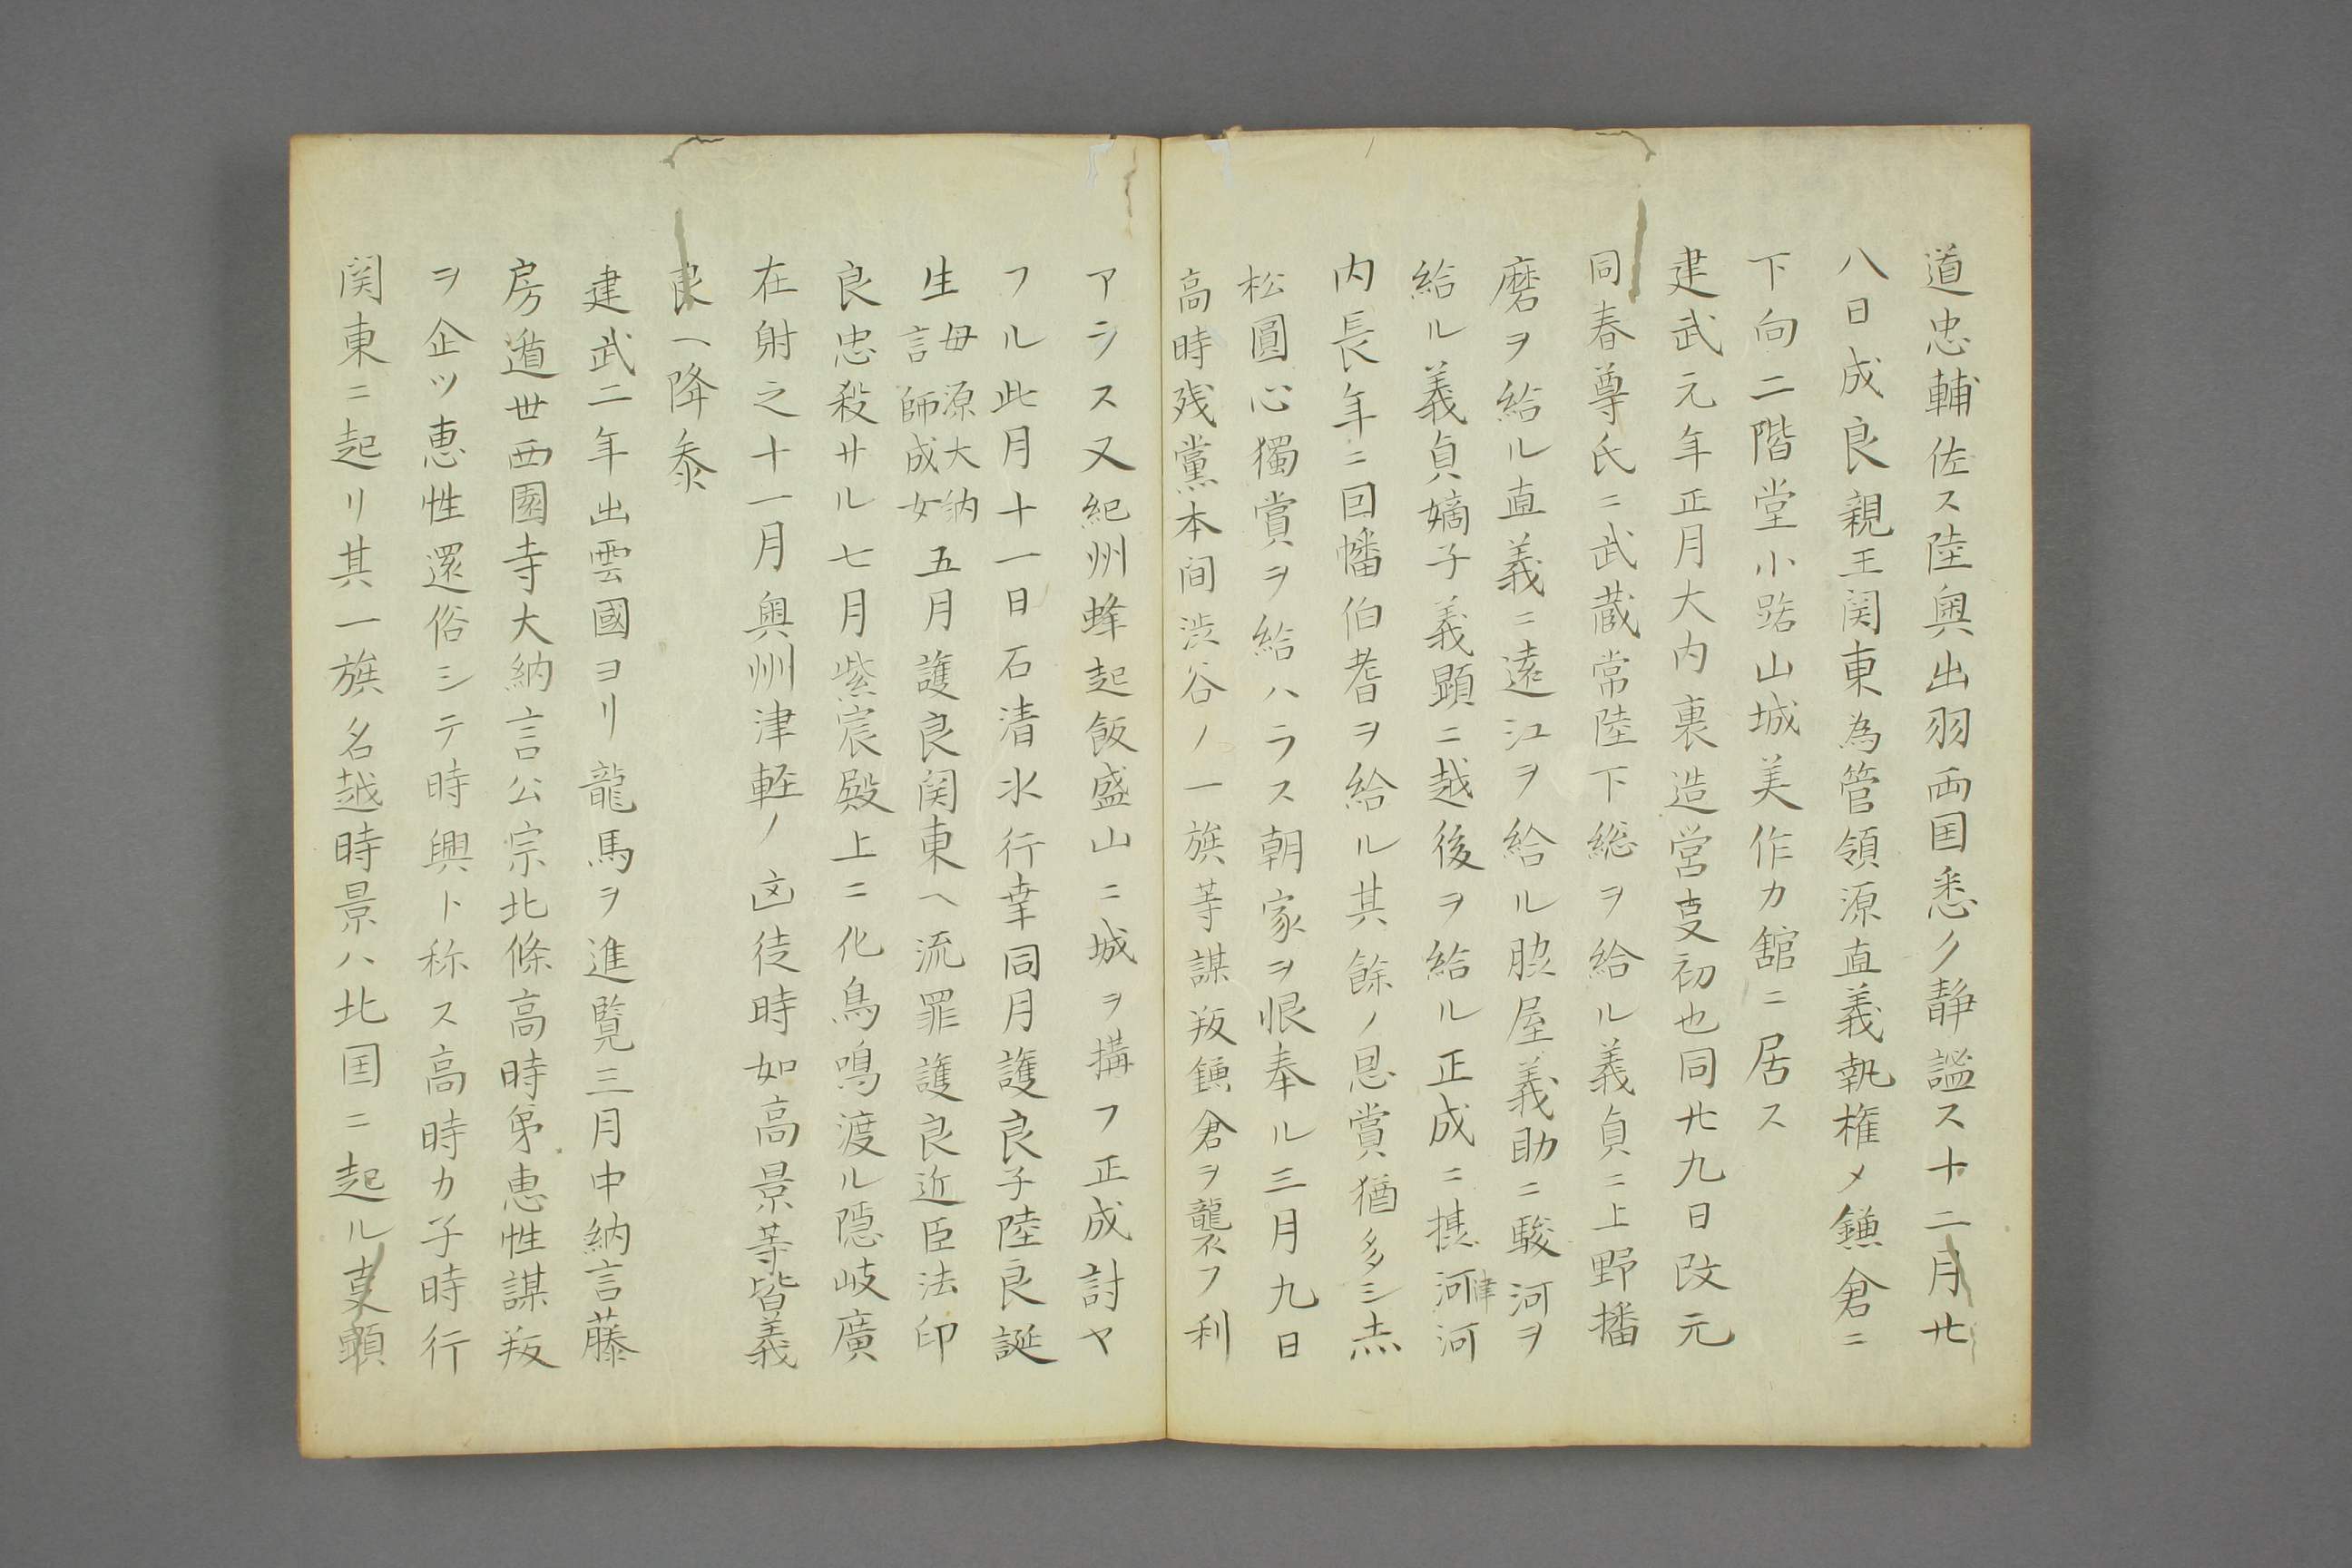 道忠輔佐ス陸奥出羽両国悉ク静謐ス十二月廿
八日成良親王関東為管領源直義執権メ鎌倉ニ
下向二階堂小路山城美作カ舘ニ居ス
建武元年正月大内裏造営叓初也同廿九日改元
同春尊氏ニ武蔵常陸下総ヲ給ル義貞ニ上野播
磨ヲ給ル直義ニ遠江ヲ給ル脇屋義助ニ駿河ヲ
給ル義貞嫡子義顕ニ越後ヲ給ル正成ニ摂津河
内長年ニ因幡伯耆ヲ給ル其餘ノ恩賞猶多シ赤
松圓心獨賞ヲ給ハラス朝家ヲ恨奉ル三月九日
高時残黨本间渋谷ノ一族等謀叛鎌倉ヲ襲フ利
アラス又紀州蜂起飯盛山ニ城ヲ搆フ正成討ヤ
フル此月十一日石清水行幸同月護良子陸良誕
生母源大納言師成女五月護良関東ヘ流罪護良近臣法印
良忠殺サル七月紫宸殿上ニ化鳥鳴渡ル隠岐廣
在射之十一月奥州津軽ノ凶徒時如高景等皆義
良ヘ降参
建武二年出雲國ヨリ龍馬ヲ進覧三月中納言藤
房遁世西園寺大納言公宗北條高時弟恵性謀叛
ヲ企ツ恵性還俗シテ時興ト称ス高時カ子時行
関東ニ起リ其一族名越時景ハ北国ニ起ル叓顕